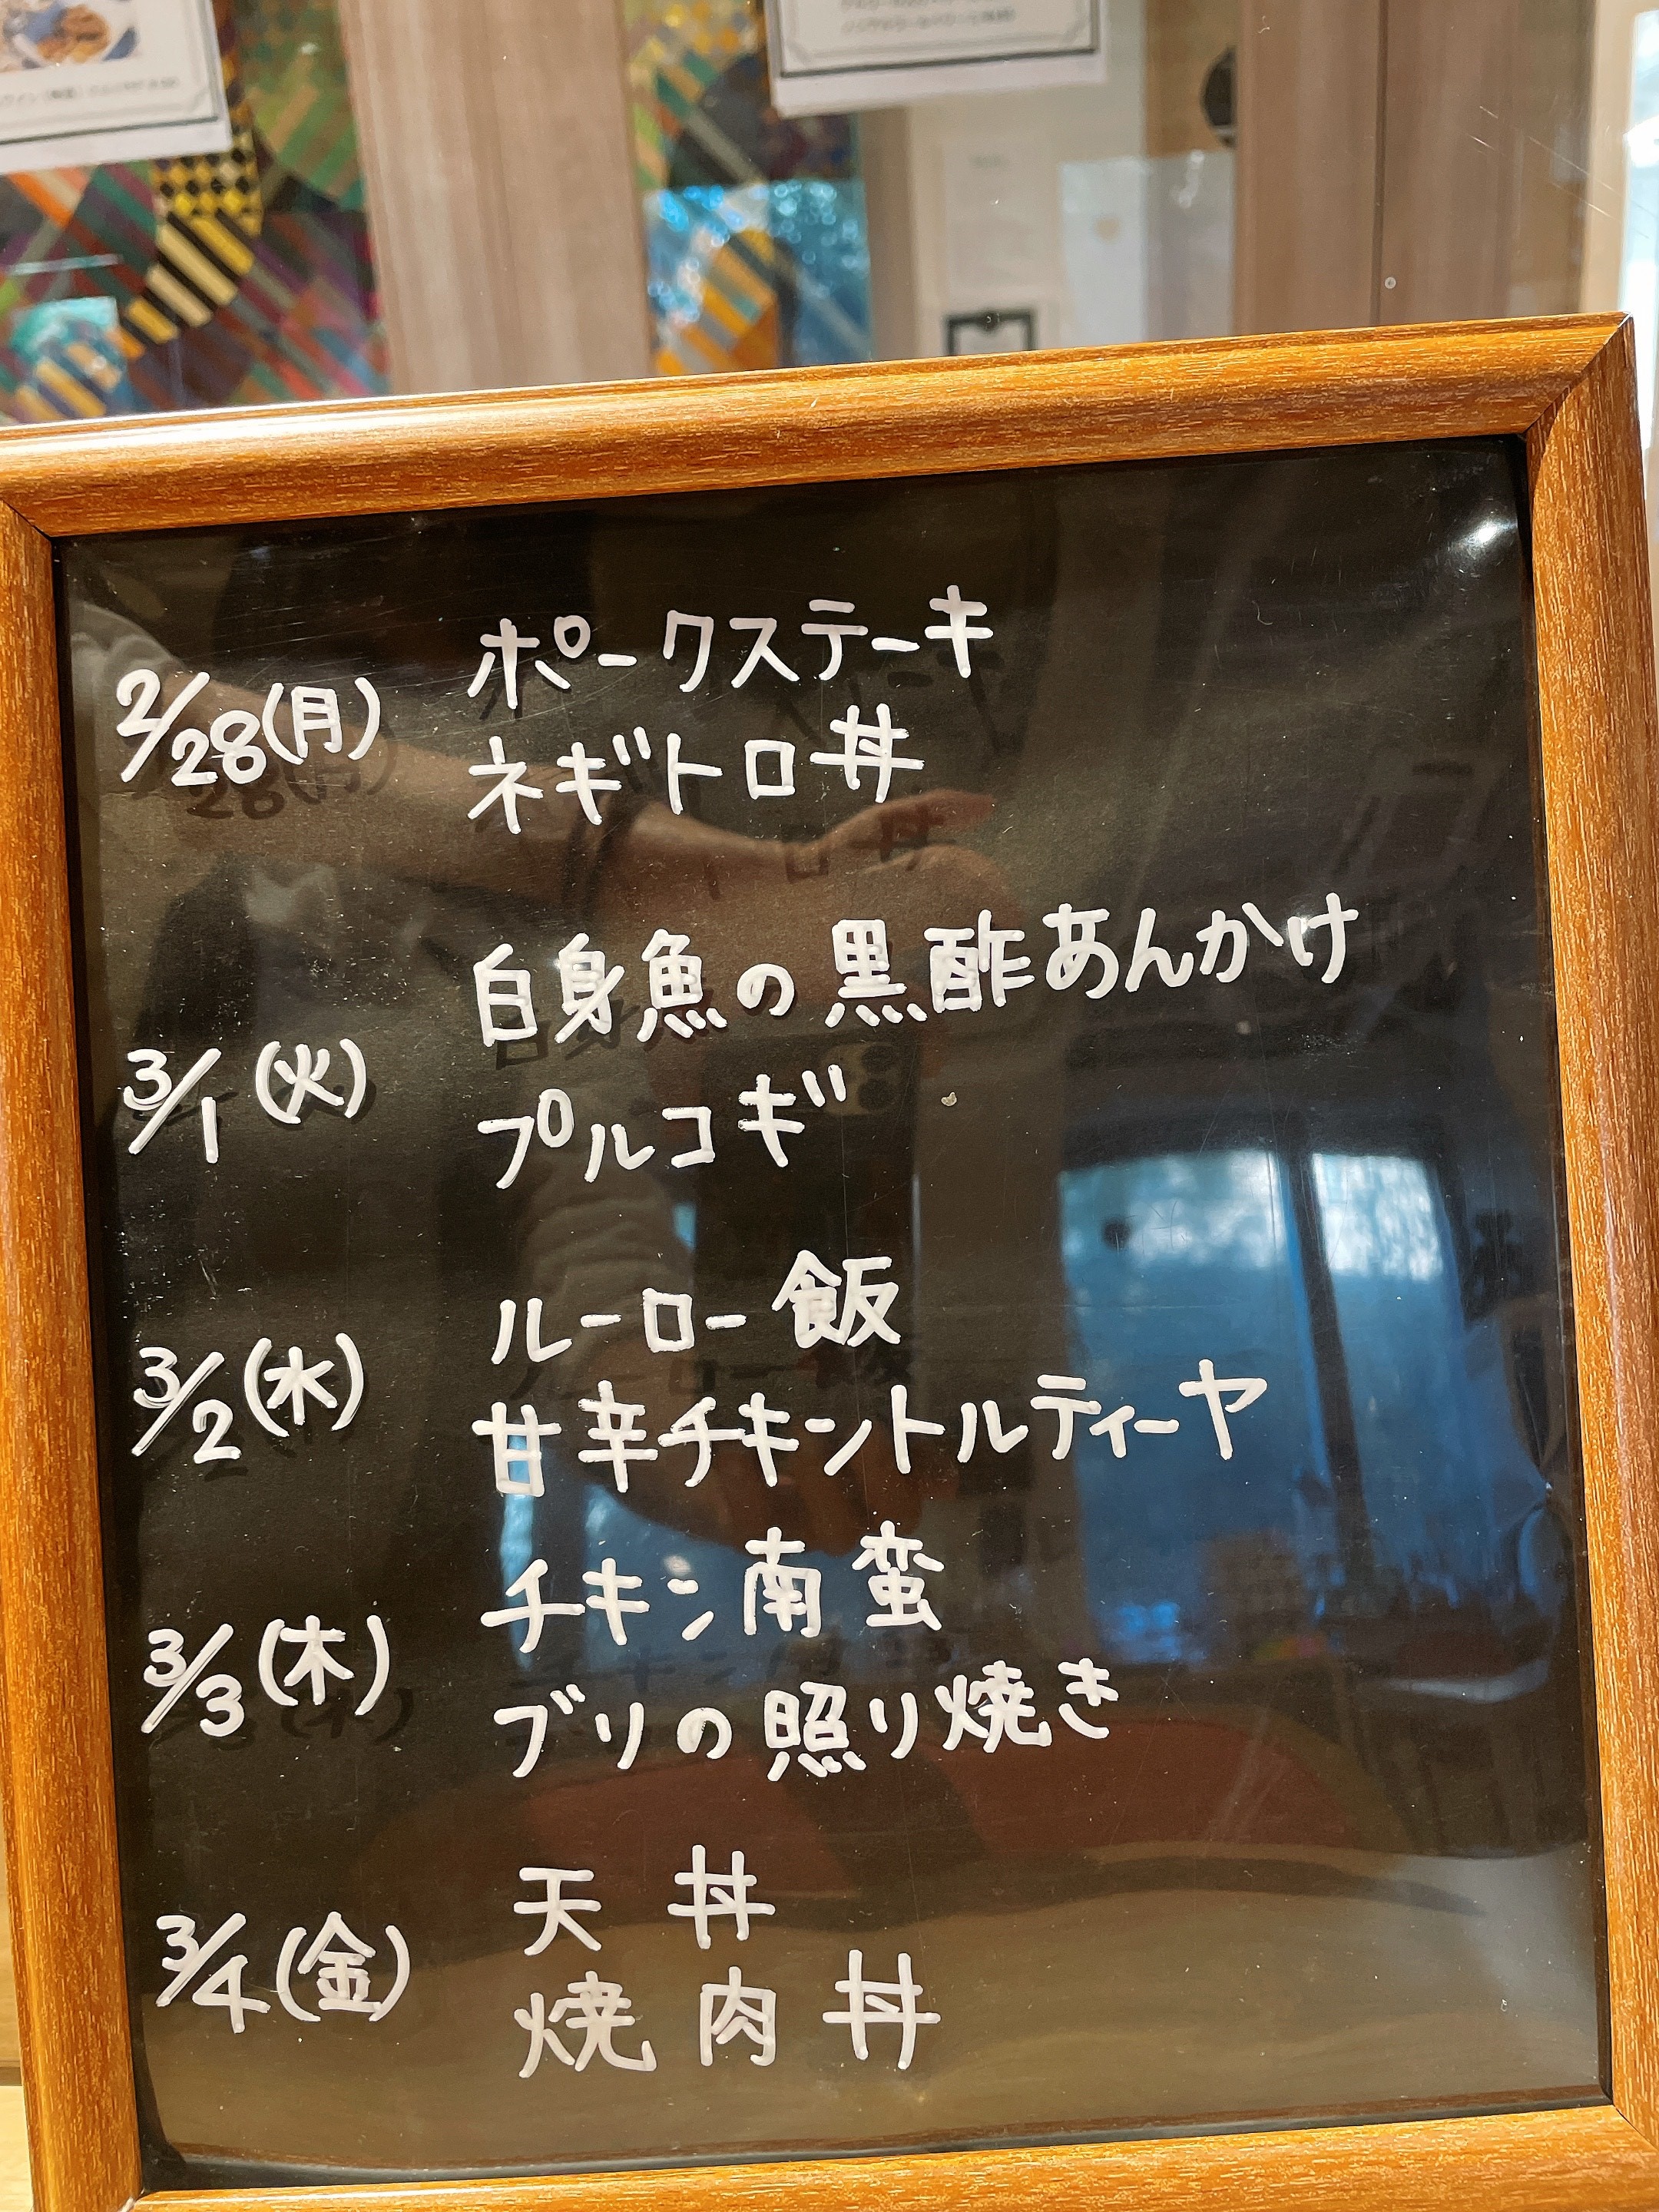 2/28(月)
ポークステーキ
ネギトロ丼
3/1(火)
白身魚の黒酢あんかけ
プルコギ
3/2(水)
ルーロー飯
甘辛チキントルティーヤ
3/3(木)
チキン南蛮
ブリの照り焼き
3/4(金)
天丼
焼肉丼